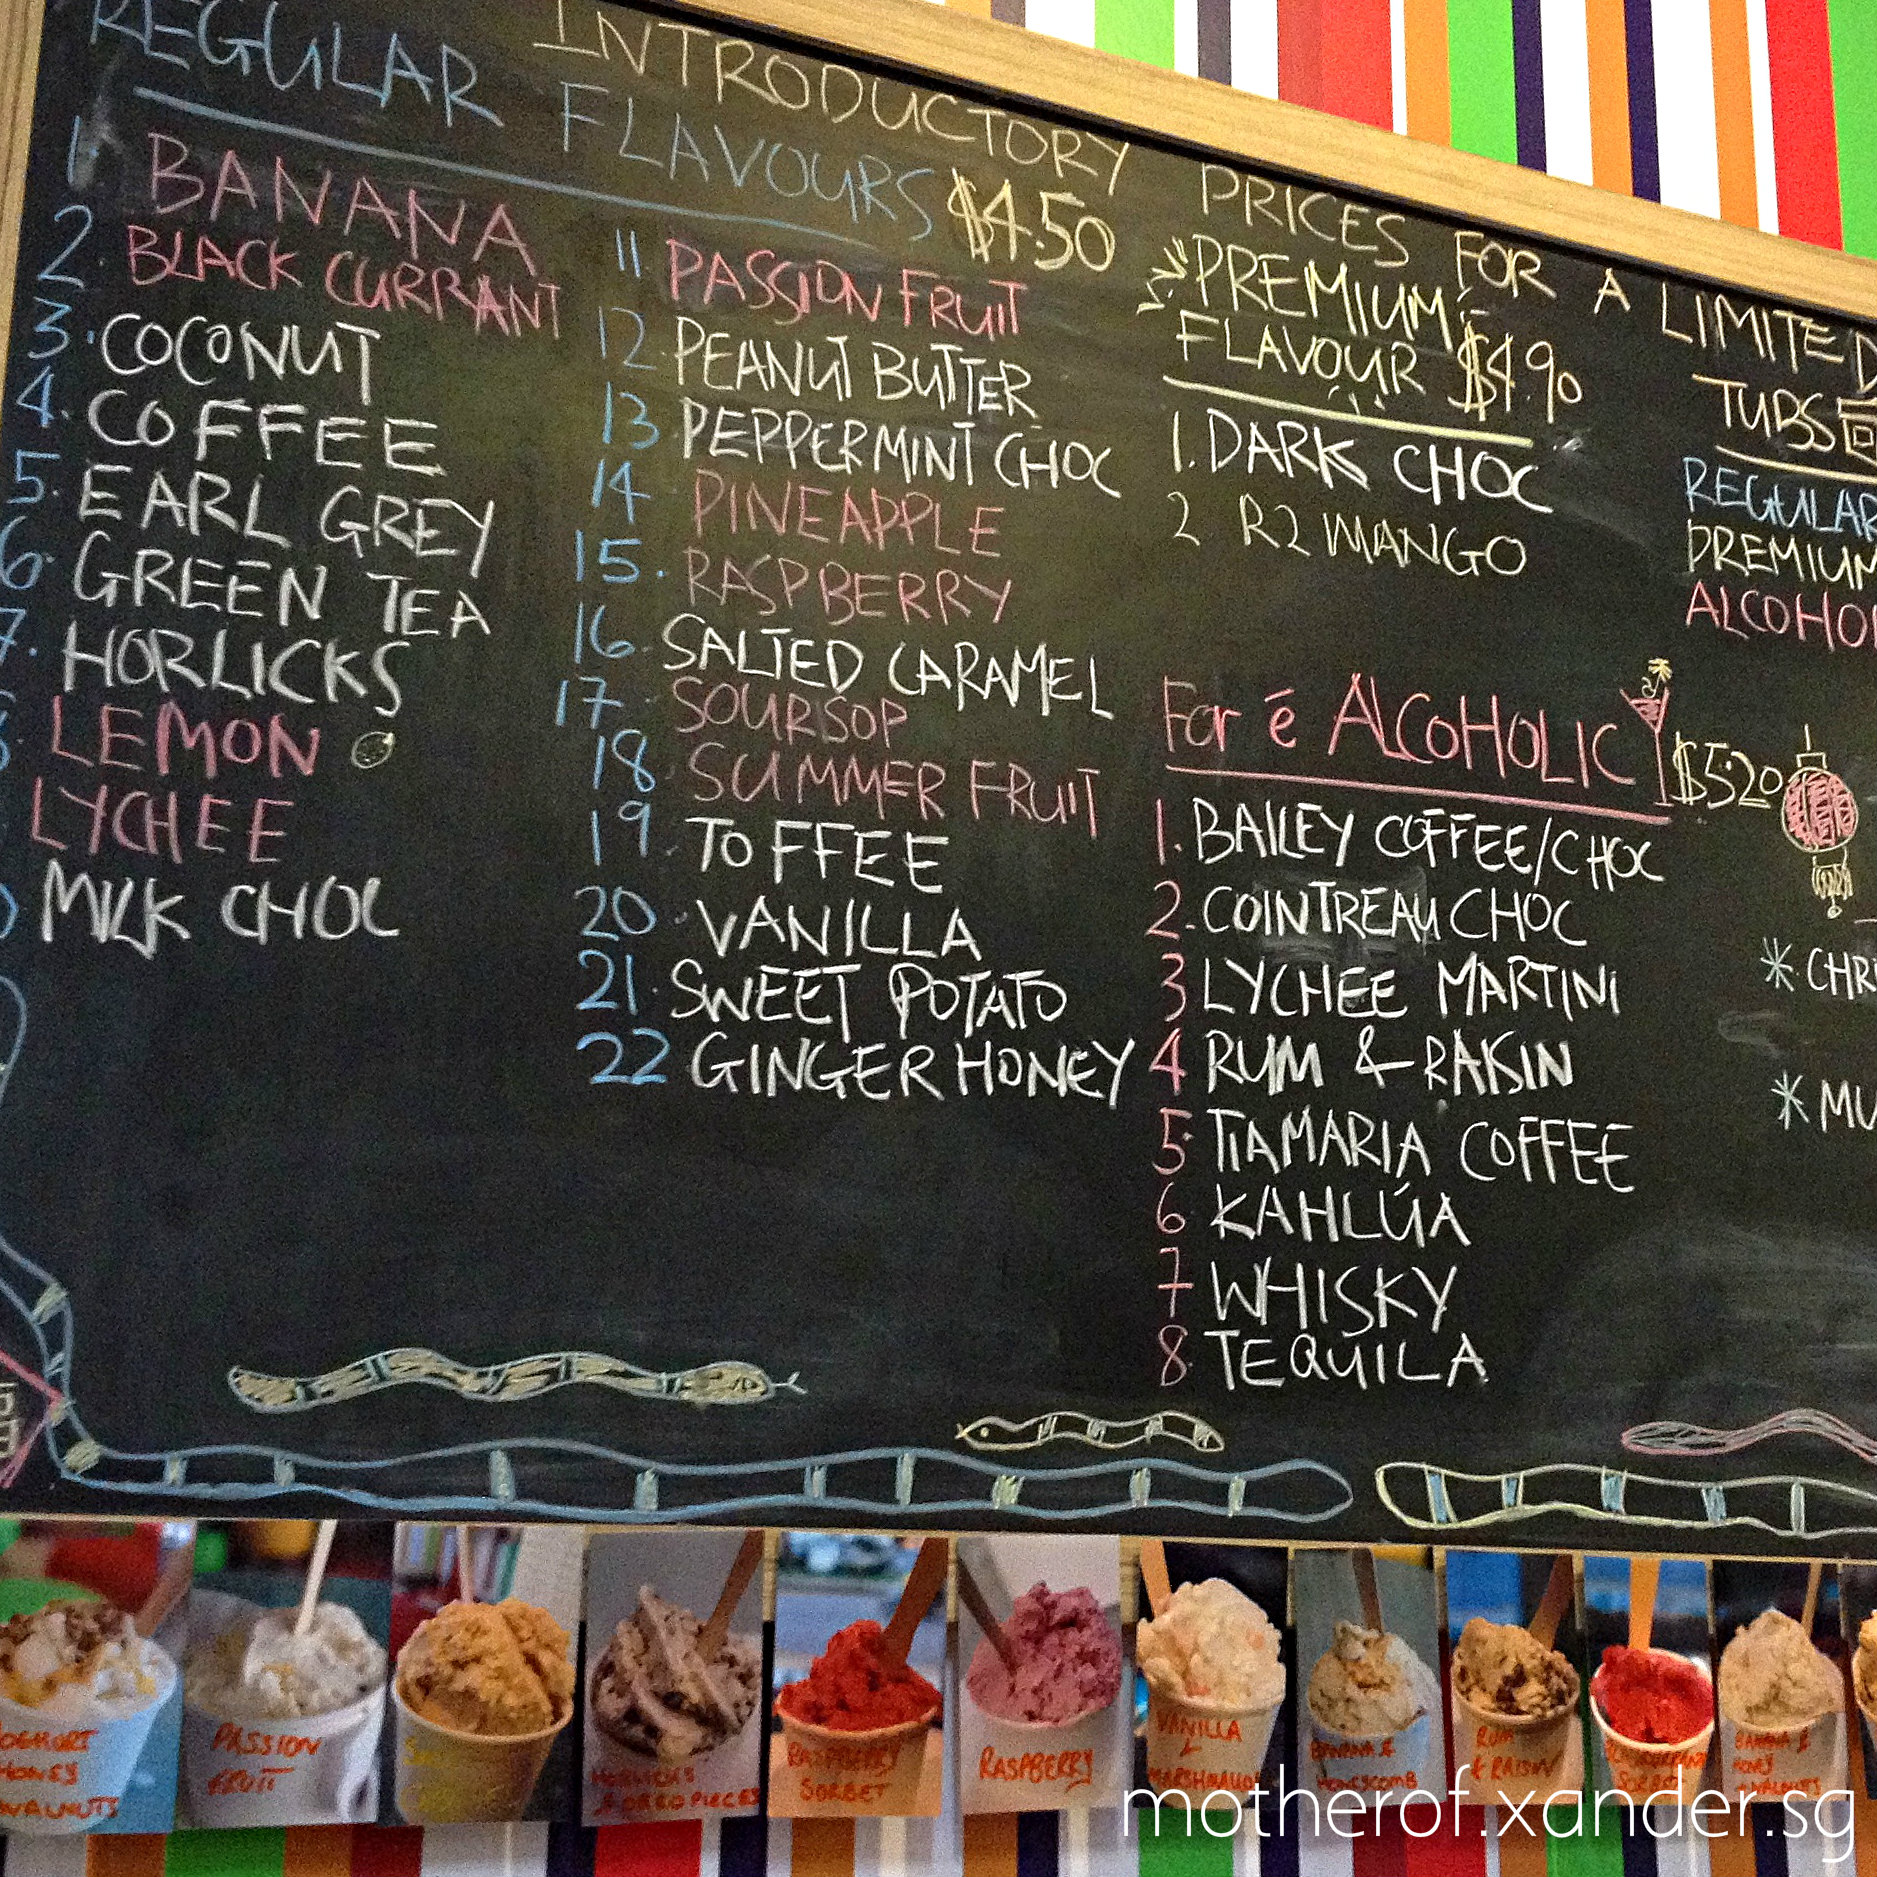 INTRODUCTORY PRICES FOR A LIMITED
REGULAR FLAVOURS $4.50
1. BANANA
2. BLACK CURRANT
3. COCONUT
4. COFFEE
5. EARL GREY
6. GREEN TEA
7. HORLICKS
LEMON
LYCHEE
MILK CHOC
11. PASSION FRUIT
12. PEANUT BUTTER
13. PEPPERMINT CHOC
14 PINEAPPLE
15. RASPBERRY
16. SALTED CARAMEL
17. SOURSOP
18. SUMMER FRUIT
19 TOFFEE
20. VANILLA
21. SWEET POTATO
22 GINGER HONEY
PREMIUM
FLAVOUR $4.90
1. DARK CHOC
2 R2 MANGO
For é ALCOHOLIC $5.20
1. BAILEY COFFEE/CHOC
2. COINTREAU CHOC
3 LYCHEE MARTINI
4 RUM & RAISIN
5. TIAMARIA COFFEE
6 KAHLÚA
7 WHISKY
8. TEQUILA
TUBS
REGULAR
PREMIUM
ALCOHOL
* CHR
* MU
YOGHURT
HONEY
WALNUTS
PASSION
FRUIT
HORLICKS
& OREO PIECES
RASPBERRY
SORBET
RASPBERRY
VANILLA
MARSHMALLOW
BANANA &
HONEYCOMB
RUM
& RAISIN
SORBET
BANANA &
HONEY
WALNUTS
motherof.xander.sg